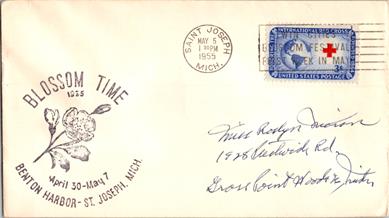 SAINT JOSEPH
MAY 5
1 30 PM
1955
MICH.
INTERNATIONAL RED CROSS
TWIN CITIES
BLOSSOM FESTIVAL
FIRST WEEK IN MAY
3¢
UNITED STATES POSTAGE
BLOSSOM TIME
1955
April 30-May 7
BENTON HARBOR - ST. JOSEPH, MICH.
Miss
Rd.